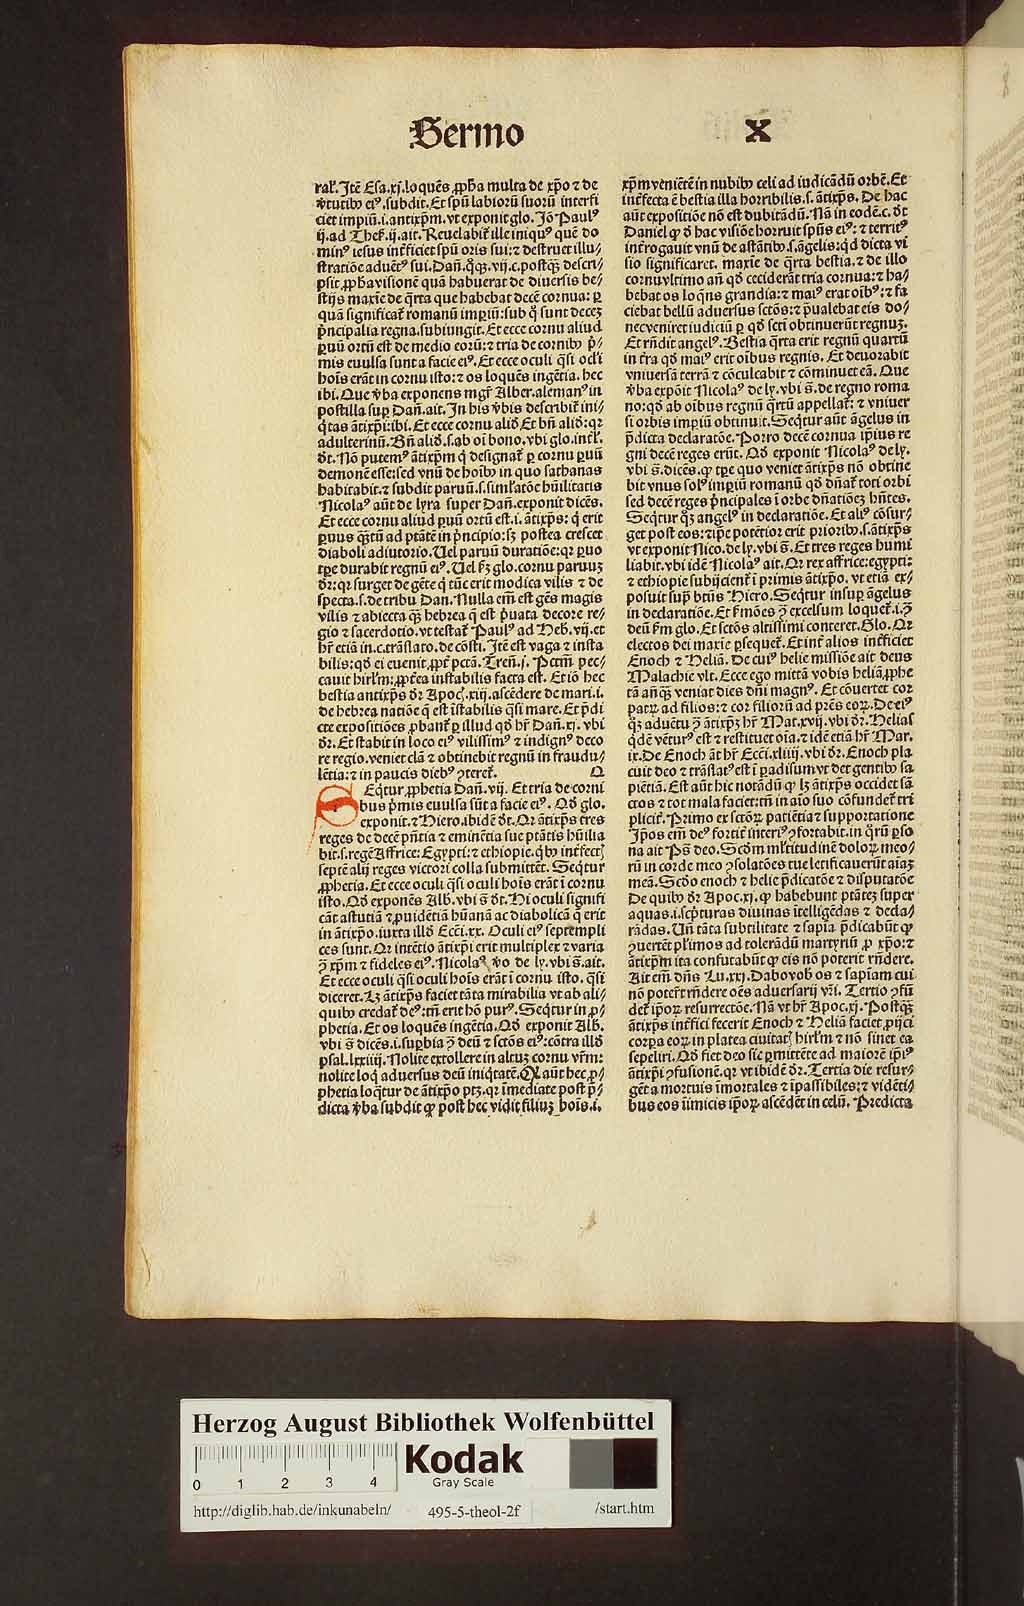 Sermo X
ral̃. Itẽ Esa.xj.loquẽs ꝓph̃a multa de xp̃o ⁊ de
v̾tutibꝰ eiꝰ.subdit. Et spũ labiorũ suorũ interfi
ciet impiũ.i.antixp̃m. vt exponit glo. Jõ Paulꝰ
ij.ad Thess̃.ij.ait. Reuelabit̃ ille iniquꝰ quẽ do
minꝰ iesus inf̃ficiet spũ oris sui:⁊ destruet illu/
stratiõe aduẽtꝰ sui. Dañ.q̃qꝫ.vij.c.postqꝫ descri/
psit ꝓph̃a visionẽ quã habuerat de diuersis be/
stijs maxĩe de q̃rta que habebat decẽ cornua: ꝑ
quã significat̃ romanũ imꝑiũ: sub q̊ sunt decez
p̃ncipalia regna.subiungit. Et ecce cornu aliud
ꝑuũ ortũ est de medio eorũ:⁊ tria de cornibꝰ p̃/
mis euulsa sunt a facie eiꝰ. Et ecce oculi q̃si ocl̃i
hoĩs erãt in cornu isto:⁊ os loquẽs ingẽtia. hec
ibi. Que v̾ba exponens mgr̃ Alber.alemanꝰ in
postilla suꝑ Dañ.ait. In his v̾bis describit̃ ini/
q̃tas ãtixp̃i:ibi. Et ecce cornu aliđ Et bñ aliđ:qꝛ
adulterinũ. Bñ aliđ.s.ab oĩ bono. vbi glo.int̃l̃.
đt. Nõ putemꝰ ãtixp̃m q̃ designat̃ ꝑ cornu ꝑuũ
demonẽ esse:sed vnũ de hoĩbꝰ in quo sathanas
habitabit.⁊ subdit paruũ.s.siml̃atõe hũilitatis
Nicolaꝰ aũt de lyra super Dañ.exponit dicẽs.
Et ecce cornu aliud ꝑuũ ortũ est.i.ãtixp̃s: q̃ erit
ꝑuus q̃ꝫtũ ad ptãtẽ in p̃ncipio:sꝫ postea crescet
diaboli adiutorio. Uel paruũ duratiõe:qꝛ ꝑuo
tp̃e durabit regnũ eiꝰ. Uel ẜꝫ glo.cornu paruuz
đr:qꝛ surget de gẽte q̃ tũc erit modica vilis ⁊ de
specta.s.de tribu Dan. Nulla em̃ est gẽs magis
vilis ⁊ abiecta q̃ꝫ hebrea q̃ est p̃uata decore re/
gio ⁊ sacerdotio. vt testat̃ Paulꝰ ad Heb̃.vij.et
hr̃ etiã in.c.trãslato.de cõsti. Itẽ est vaga ⁊ insta
bilis:qđ ei euenit.ꝓpt̃ pctã. Treñ.j. Pctm̃ pec/
cauit hirl̃m:ꝓpt̃ea instabilis facta est. Et iõ hec
bestia antixp̃s đr Apoc̃.xiij.ascẽdere de mari.i.
de hebrea natiõe q̃ est ĩstabilis q̃si mare. Et p̃di
cte expositiões ꝓbant̃ ꝑ illud qđ hr̃ Dañ.xj. vbi
đr. Et stabit in loco eiꝰ vilissimꝰ ⁊ indignꝰ deco
re regio.veniet clã ⁊ obtinebit regnũ in fraudu/
lẽtia:⁊ in paucis diebꝰ ꝯteret̃. Q
SEq̃tur ꝓphetia Dañ.vij. Et tria de corni
bus p̃mis euulsa sũt a facie eiꝰ. Qđ glo.
exponit.⁊ Hiero.ibidẽ đt. Qꝛ ãtixp̃s tres
reges de decẽ p̃ñtia ⁊ eminẽtia sue ptãtis hũilia
bit.s.regẽ Affrice: Egypti:⁊ ethiopie.q̃bꝰ inf̃fectꝭ
septẽ alij reges victori colla submittẽt. Seq̃tur
ꝓphetia. Et ecce oculi q̃si oculi hoĩs erãt ĩ cornu
isto. Qđ exponẽs Alb̃. vbi s̃.đt. Hi oculi signifi
cãt astutiã ⁊ ꝓuidẽtiã hũanã ac diabolicã q̃ erit
in ãtixp̃o.iuxta illđ Ecci̾.xx. Oculi eiꝰ septempli
ces sunt. Qꝛ intẽtio ãtixp̃i erit multiplex ⁊ varia
ꝯ̃ xp̃m ⁊ fideles eiꝰ. Nicolaꝰ v̾o de ly.vbi s̃.ait.
Et ecce oculi q̃si oculi hoĩs erãt ĩ cornu isto. q̃si
diceret. Lꝫ ãtixp̃s faciet tãta mirabilia vt ab ali/
quibꝰ credat̃ deꝰ:tñ erit hõ purꝰ. Seq̃tur in ꝓ/
phetia. Et os loquẽs ingẽtia. Qđ exponit Alb̃.
vbi s̃ dicẽs.i.suꝑbia ꝯ̃ deũ ⁊ sctõs eiꝰ:cõtra illđ
psal.lxxiiij. Nolite extollere in altuz cornu vr̃m:
nolite loq̃ aduersus deũ iniq̃tatẽ. Qꝛ aũt hec ꝓ/
phetia loq̃tur de ãtixp̃o ptꝫ.qꝛ ĩmediate post p̃/
dicta v̾ba subdit ꝙ post hec vidit filiuz hoĩs.i.
xp̃m veniẽtẽ in nubibꝰ celi ad iudicãdũ orbẽ. Et
inf̃fecta ẽ bestia illa horribilis.s.ãtixp̃s. De hac
aũt expositiõe nõ est dubitãdũ. Nã in eodẽ.c.đt
Daniel ꝙ đ hac visiõe horruit spũs eiꝰ:⁊ territꝰ
int̃rogauit vnũ de astãtibꝰ.s.ãgelis:qđ dicta vi
sio significaret. maxĩe de q̃rta bestia.⁊ de illo
cornu vltimo añ qđ ceciderãt tria cornua:⁊ ha/
bebat os loq̃ns grandia:⁊ maiꝰ erat oĩbꝰ:⁊ fa
ciebat bellũ aduersus sctõs:⁊ p̃ualebat eis do/
nec veniret iudiciũ ꝑ qđ scti obtinuerũt regnuꝫ.
Et rñdit angelꝰ. Bestia q̃rta erit regnũ quartũ
in t̃ra qđ maiꝰ erit oĩbus regnis. Et deuorabit
vniuersã terrã ⁊ cõculcabit ⁊ cõminuet eã. Que
v̾ba expõit Nicolaꝰ de ly. vbi s̃. de regno roma
no:qđ ab oĩbus regnũ q̃rtũ appellat̃:⁊ vniuer
si orbis imꝑiũ obtinuit. Seq̃tur aũt ãgelus in
p̃dicta declaratõe. Porro decẽ cornua ip̃ius re
gni decẽ reges erũt. Qđ exponit Nicolaꝰ de ly.
vbi s̃.dicẽs.ꝙ tꝑe quo veniet ãtixp̃s nõ obtine
bit vnus solꝰ imꝑiũ romanũ qđ dñat̃ toti orbi
sed decẽ reges p̃ncipales ĩ orbe dñatiõez hñtes.
Seq̃tur q̃ꝫ angelꝰ in declaratiõe. Et aliꝰ cõsur/
get post eos:⁊ip̃e potẽtior erit prioribꝰ.s.ãtixp̃s
vt exponit Nico.de ly.vbi s̃. Et tres reges humi
liabit.vbi idẽ Nicolaꝰ ait. Qꝛ rex affrice:egypti:
⁊ ethiopie subijcient̃ ĩ primis ãtixp̃o. vt etiã ex/
posuit suꝑ btũs Hiero. Seq̃tur insuꝑ ãgelus
in declaratiõe. Et ẜmões ꝯ̃ excelsum loquet̃.i.ꝯ̃
deũ ẜm glo. Et sctõs altissimi conteret. Glo. Qꝛ
electos dei maxie ꝑsequet̃. Et int̃ alios inf̃ficiet
Enoch ⁊ Heliã. De cuiꝰ helie missiõe ait deus
Malachie vlt. Ecce ego mittã vobis heliã.ꝓphe
tã añq̃ꝫ veniat dies dñi magnꝰ. Et cõuertet cor
patꝝ ad filios:⁊ cor filiorũ ad pr̃es eoꝝ. De eiꝰ
q̃ꝫ aduẽtu ꝯ̃ ãtixp̃ꝫ hr̃ Mat.xvij.vbi đr. Helias
q̃dẽ vẽturꝰ est ⁊ restituet oĩa.⁊ idẽ etiã hr̃ Mar.
ix. De Enoch ãt hr̃ Ecci̾.xliiij.vbi đr. Enoch pla
cuit deo ⁊ trãslatꝰ est ĩ ꝑadisum vt det gentibꝰ sa
piẽtiã. Est aũt hic notãdũ ꝙ lꝫ ãtixp̃s occidet sã
ctos ⁊ tot mala faciet:tñ in aĩo suo cõfundet̃ tri
plicit̃. Primo ex sctõꝝ patiẽtia ⁊ supportatione
Ip̃os em̃ deꝰ fortit̃ interiꝰ ꝯfortabit.in q̃rũ ꝑso
na ait Ps̃ deo. Scđm ml̃titudinẽ doloꝝ meo/
rũ in corde meo ꝯsolatões tue letificauerũt aĩaꝫ
meã. Scđo enoch ⁊ helie p̃dicatõe ⁊ disputatõe
De quibꝰ đr Apoc.xj.ꝙ habebunt ptãteꝫ super
aquas.i.sc̾pturas diuinas ĩtelligẽdas ⁊ decla/
rãdas. Uñ tãta subtilitate ⁊ sap̃ia p̃dicabũt ꝙ
ꝯuertẽt pl̃imos ad tolerãdũ martyriũ ꝓ xp̃o:⁊
ãtixp̃m ita confutabũt ꝙ eis nõ poterit rñdere.
Ait em̃ dñs Lu.xxj. Dabo vob̃ os ⁊ sapĩam cui
nõ poter̃t rñdere oẽs aduersarij vr̃i. Tertio ꝯfũ
det̃ ip̃oꝝ resurrectõe. Nã vt hr̃ Apoc.xj. Postq̃ꝫ
ãtixp̃s inf̃fici fecerit Enoch ⁊ Heliã faciet ꝓijci
corꝑa eoꝝ in platea ciuitatꝭ hirl̃m ⁊ nõ sinet ea
sepeliri. Qđ fiet deo sic ꝑmittẽte ad maiorẽ ip̃iꝰ
ãtixp̃i ꝯfusionẽ.qꝛ vt ibidẽ đr. Tertia die resur/
gẽt a mortuis ĩmortales ⁊ ĩpassibiles:⁊ vidẽti/
bus eos iĩmicis ip̃oꝝ ascẽdẽt in celũ. Predicta
Herzog August Bibliothek Wolfenbüttel
0 1 2 3 4
Kodak
Gray Scale
http://diglib.hab.de/inkunabeln/ 495-5-theol-2f /start.htm